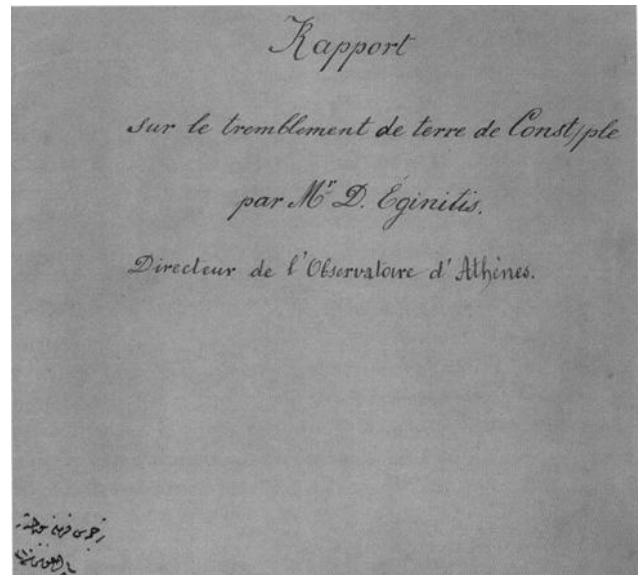 Rapport
sur le tremblement de terre de Const/ple
par Mr D. Éginitis.
Directeur de l'Observatoire d'Athènes.